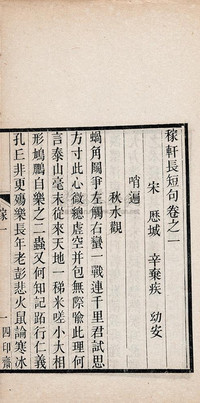 稼軒長短句卷之一
宋 歷城 辛棄疾 幼安
哨遍
秋水觀
蝸角鬭爭左觸右蠻一戰連千里君試思
方寸此心微總虛空幷包無際喻此理何
言泰山毫末從來天地一稊米嗟小大相
形鳩鵬自樂之二蟲又何知記跖行仁義
孔丘非更殤樂長年老彭悲火鼠論寒冰
稼一
一 四印齋